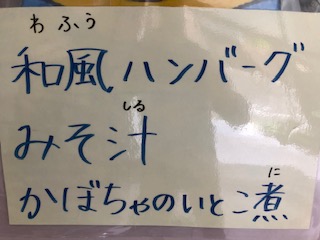 わふう
和風ハンバーグ
しる
みそ汁
に
かぼちゃのいとこ煮